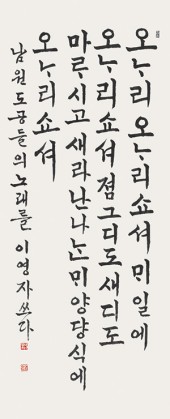 오ᄂᆞ리 오ᄂᆞ리쇼셔 ᄆᆡ일에
오ᄂᆞ리쇼셔 졈그디도 새디도
마ᄅᆞ시고 새라난 나ᄂᆞᆫ ᄆᆡ양당식에
오ᄂᆞ리쇼셔
남원도공들의 노래를 이영자 쓰다